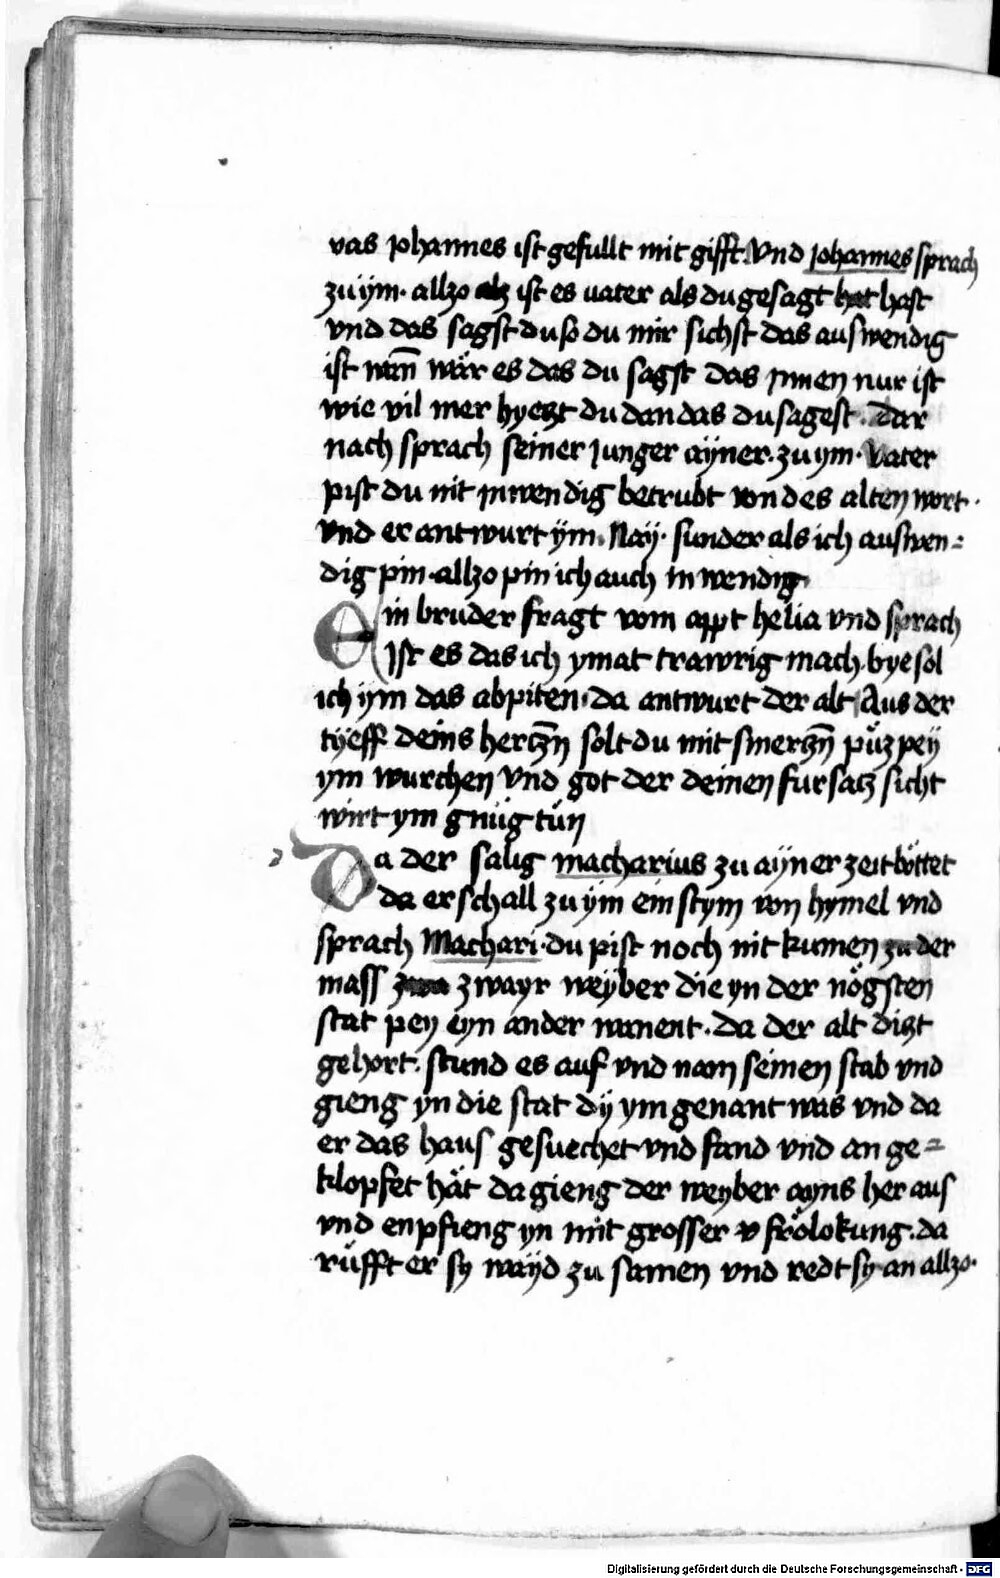 vas johannes ist gefullt mit gifft. Vnd johannes sprach
zu ym. allzo ist es vater als du gesagt hast
vnd das sagst du so du mir sichst das auswendig
ist wan̄ wär es das du sagst das jnnen nur ist
wie vil mer hyetzt du dan das du sagest. Dar
nach sprach seiner junger ayner. zu ym. Vater
pist du nit jnwendig betrubt von des alten wort.
vnd er antwurt ym. Nay. sunder als ich auswen=
dig pin. allzo pin ich auch inwendig.
Ein bruder fragt vom appt helia vnd sprach
Ist es das ich ymat trawrig mach. bye sol
ich ym das abpiten. da antwurt der alt Aus der
tÿeff deins hertzn̄ solt du mit smertzn̄ püz pey
ym wurchen Vnd got der deinen fursatz sicht
wirt ym gnüg tün
Da der salig macharius zu ayner zeit böttet
da erschall zu ym ein stym von hymel vnd
sprach Machari. du pist noch nit kumen zu der
mass zwayr weyber die yn der nögsten
stat pey eyn ander wanent. Da der alt ditzt
gehort. stund es auf vnd nam seinen stab vnd
gieng yn die stat dÿ ym genant was vnd da
er das haus gesuechet vnd fand vnd an ge=
klopfet hät da gieng der weyber ayns her aus
vnd enpfieng yn mit grosser v frölokung. da
rüfft er sy wayd zu samen vnd redt sy an allzo.
Digitalisierung gefördert durch die Deutsche Forschungsgemeinschaft - DFG